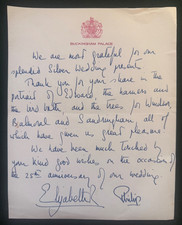 BUCKINGHAM PALACE
We are most grateful for our
splendid Silver Wedding present.
Thank you for your share in the
portrait of Edward, the harness and
the and the trees for Windsor,
Balmoral and Sandringham, all of
which have given us great pleasure.
We have been much touched by
your kind good wishes on the occasion of
the 25th anniversary of our wedding.
Elizabeth R
Philip